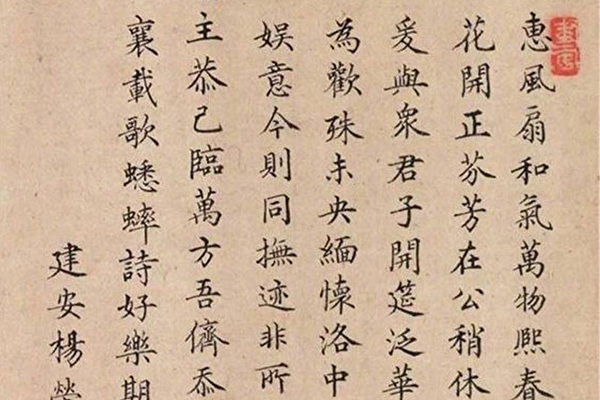 惠風扇和氣萬物熙春
花開正芬芳在公稍休
爰與衆君子開筵泛華
為歡殊未央緬懷洛中
娱意今則同撫迹非所
主恭己臨萬方吾儕忝
襄載歌蟋蟀詩好樂期
建安楊榮